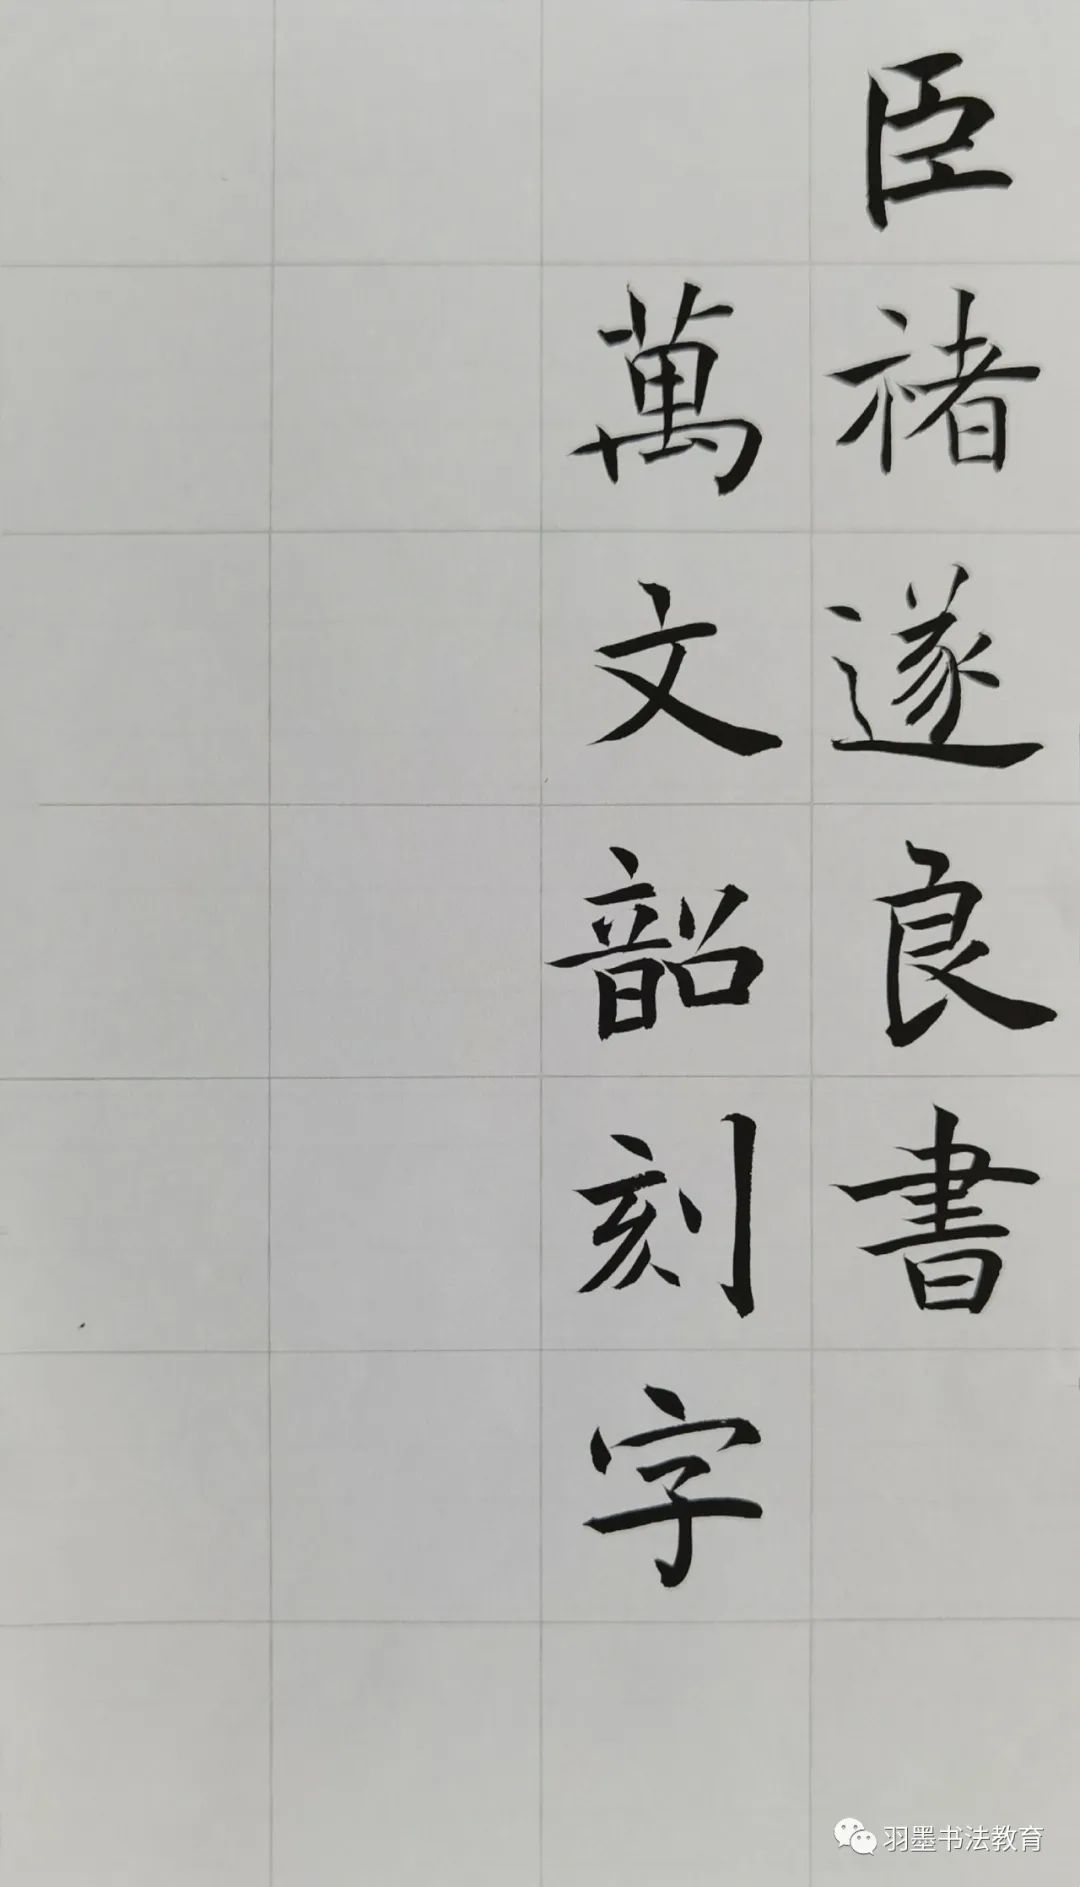 臣褚遂良書
萬文韶刻字
羽墨书法教育